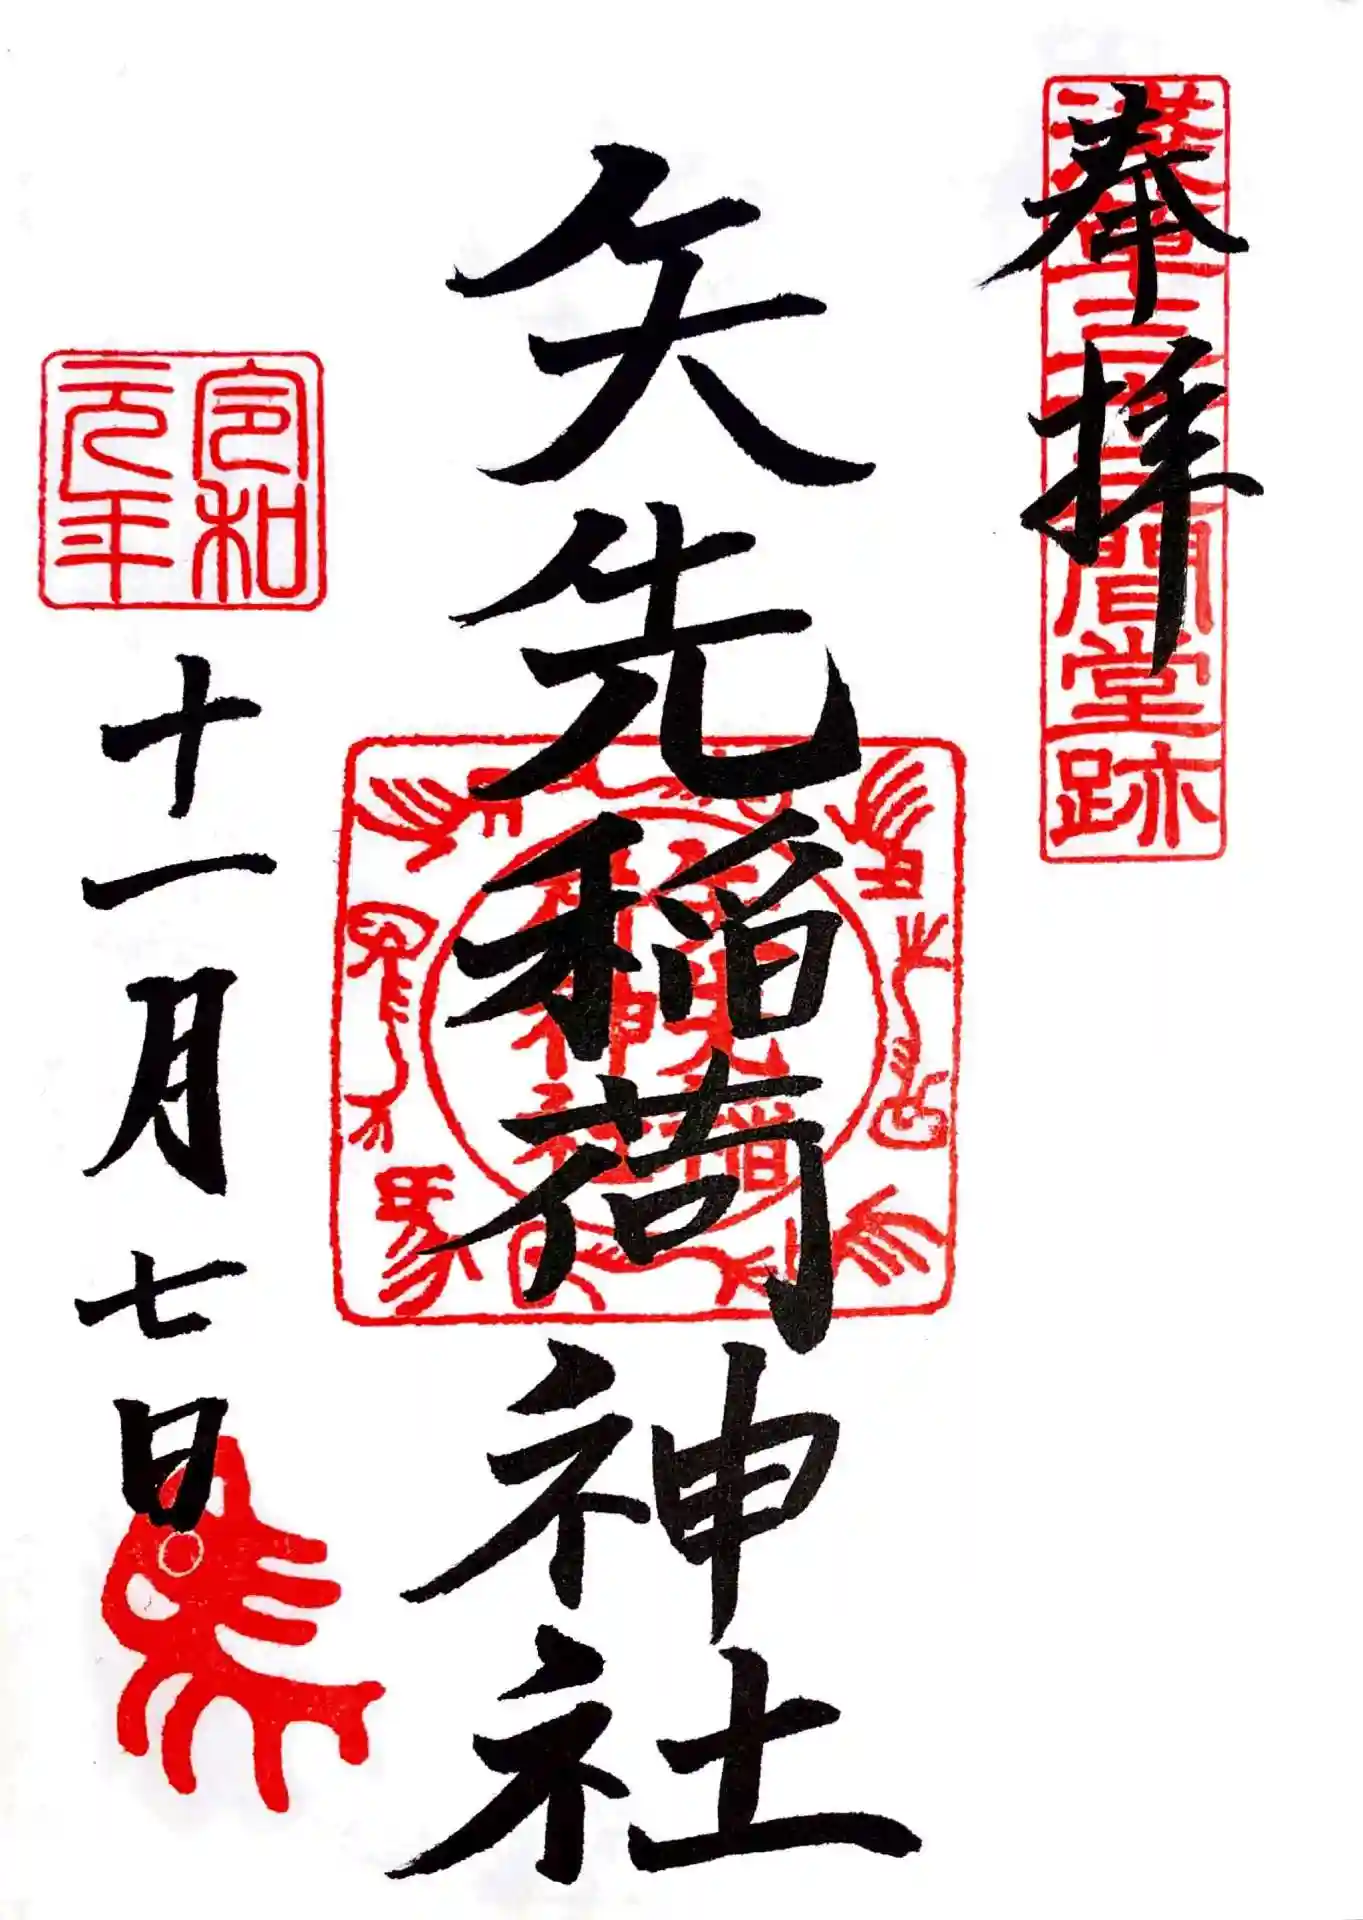 奉拝
浅草三十三間堂跡
矢先稲荷神社
令和
元年
十一月七日